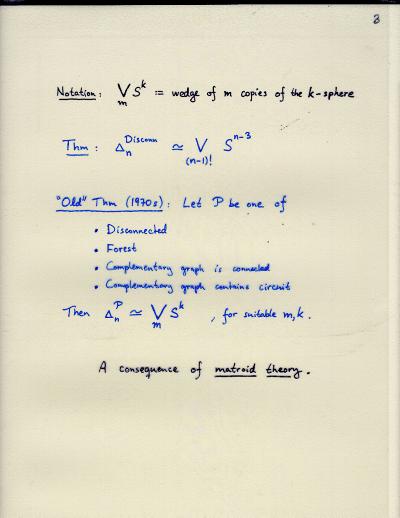 3
Notation: ⋁_m S^k := wedge of m copies of the k-sphere
Thm: Δ_n^Disconn ≃ ⋁_(n-1)! S^n-3
"Old" Thm (1970s): Let P be one of
• Disconnected
• Forest
• Complementary graph is connected
• Complementary graph contains circuit
Then Δ_n^P ≃ ⋁_m S^k, for suitable m,k.
A consequence of matroid theory.